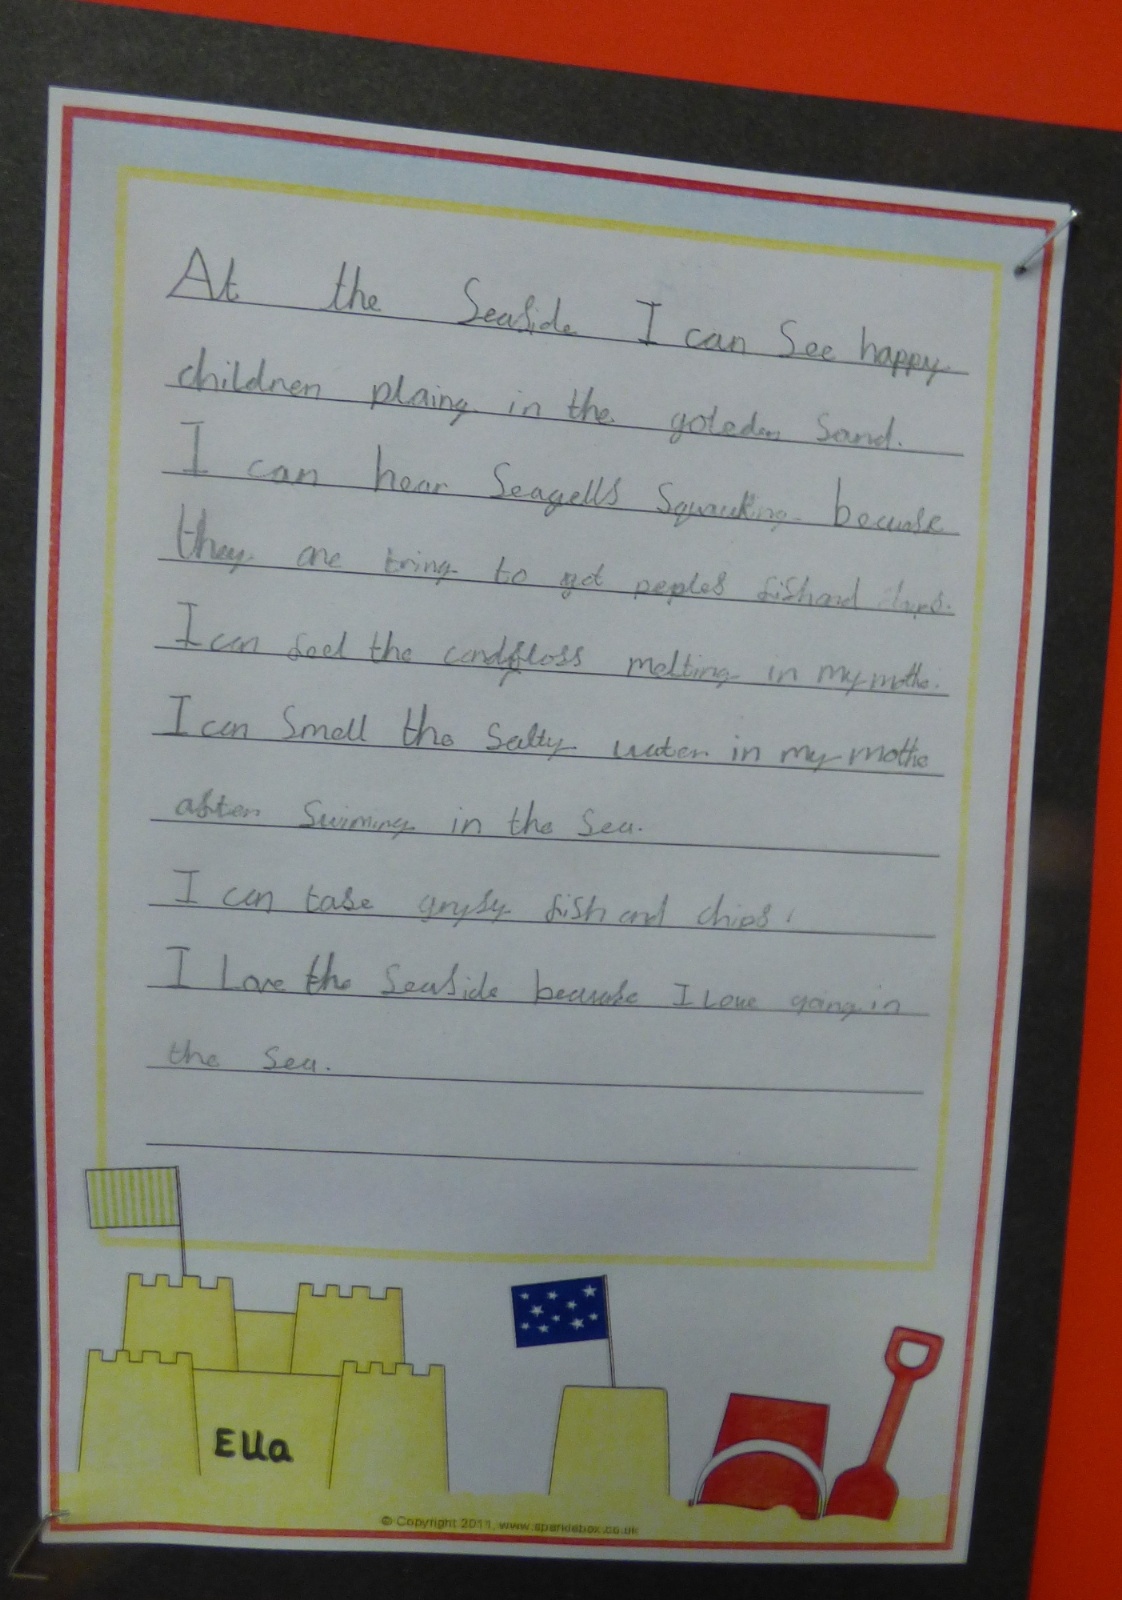 At the Seaside I can See happy
children plaing in the goleden Sand.
I can hear Seagells Squauking becuase
they are tring to get peples fish and chips.
I can feel the candyfloss melting in my mothe.
I can Smell the Salty water in my mothe
after Swiming in the Sea.
I can tase grysy fish and chips.
I Love the Seaside becuase I Love going in
the Sea.
Ella
© Copyright 2011, www.sparklebox.co.uk